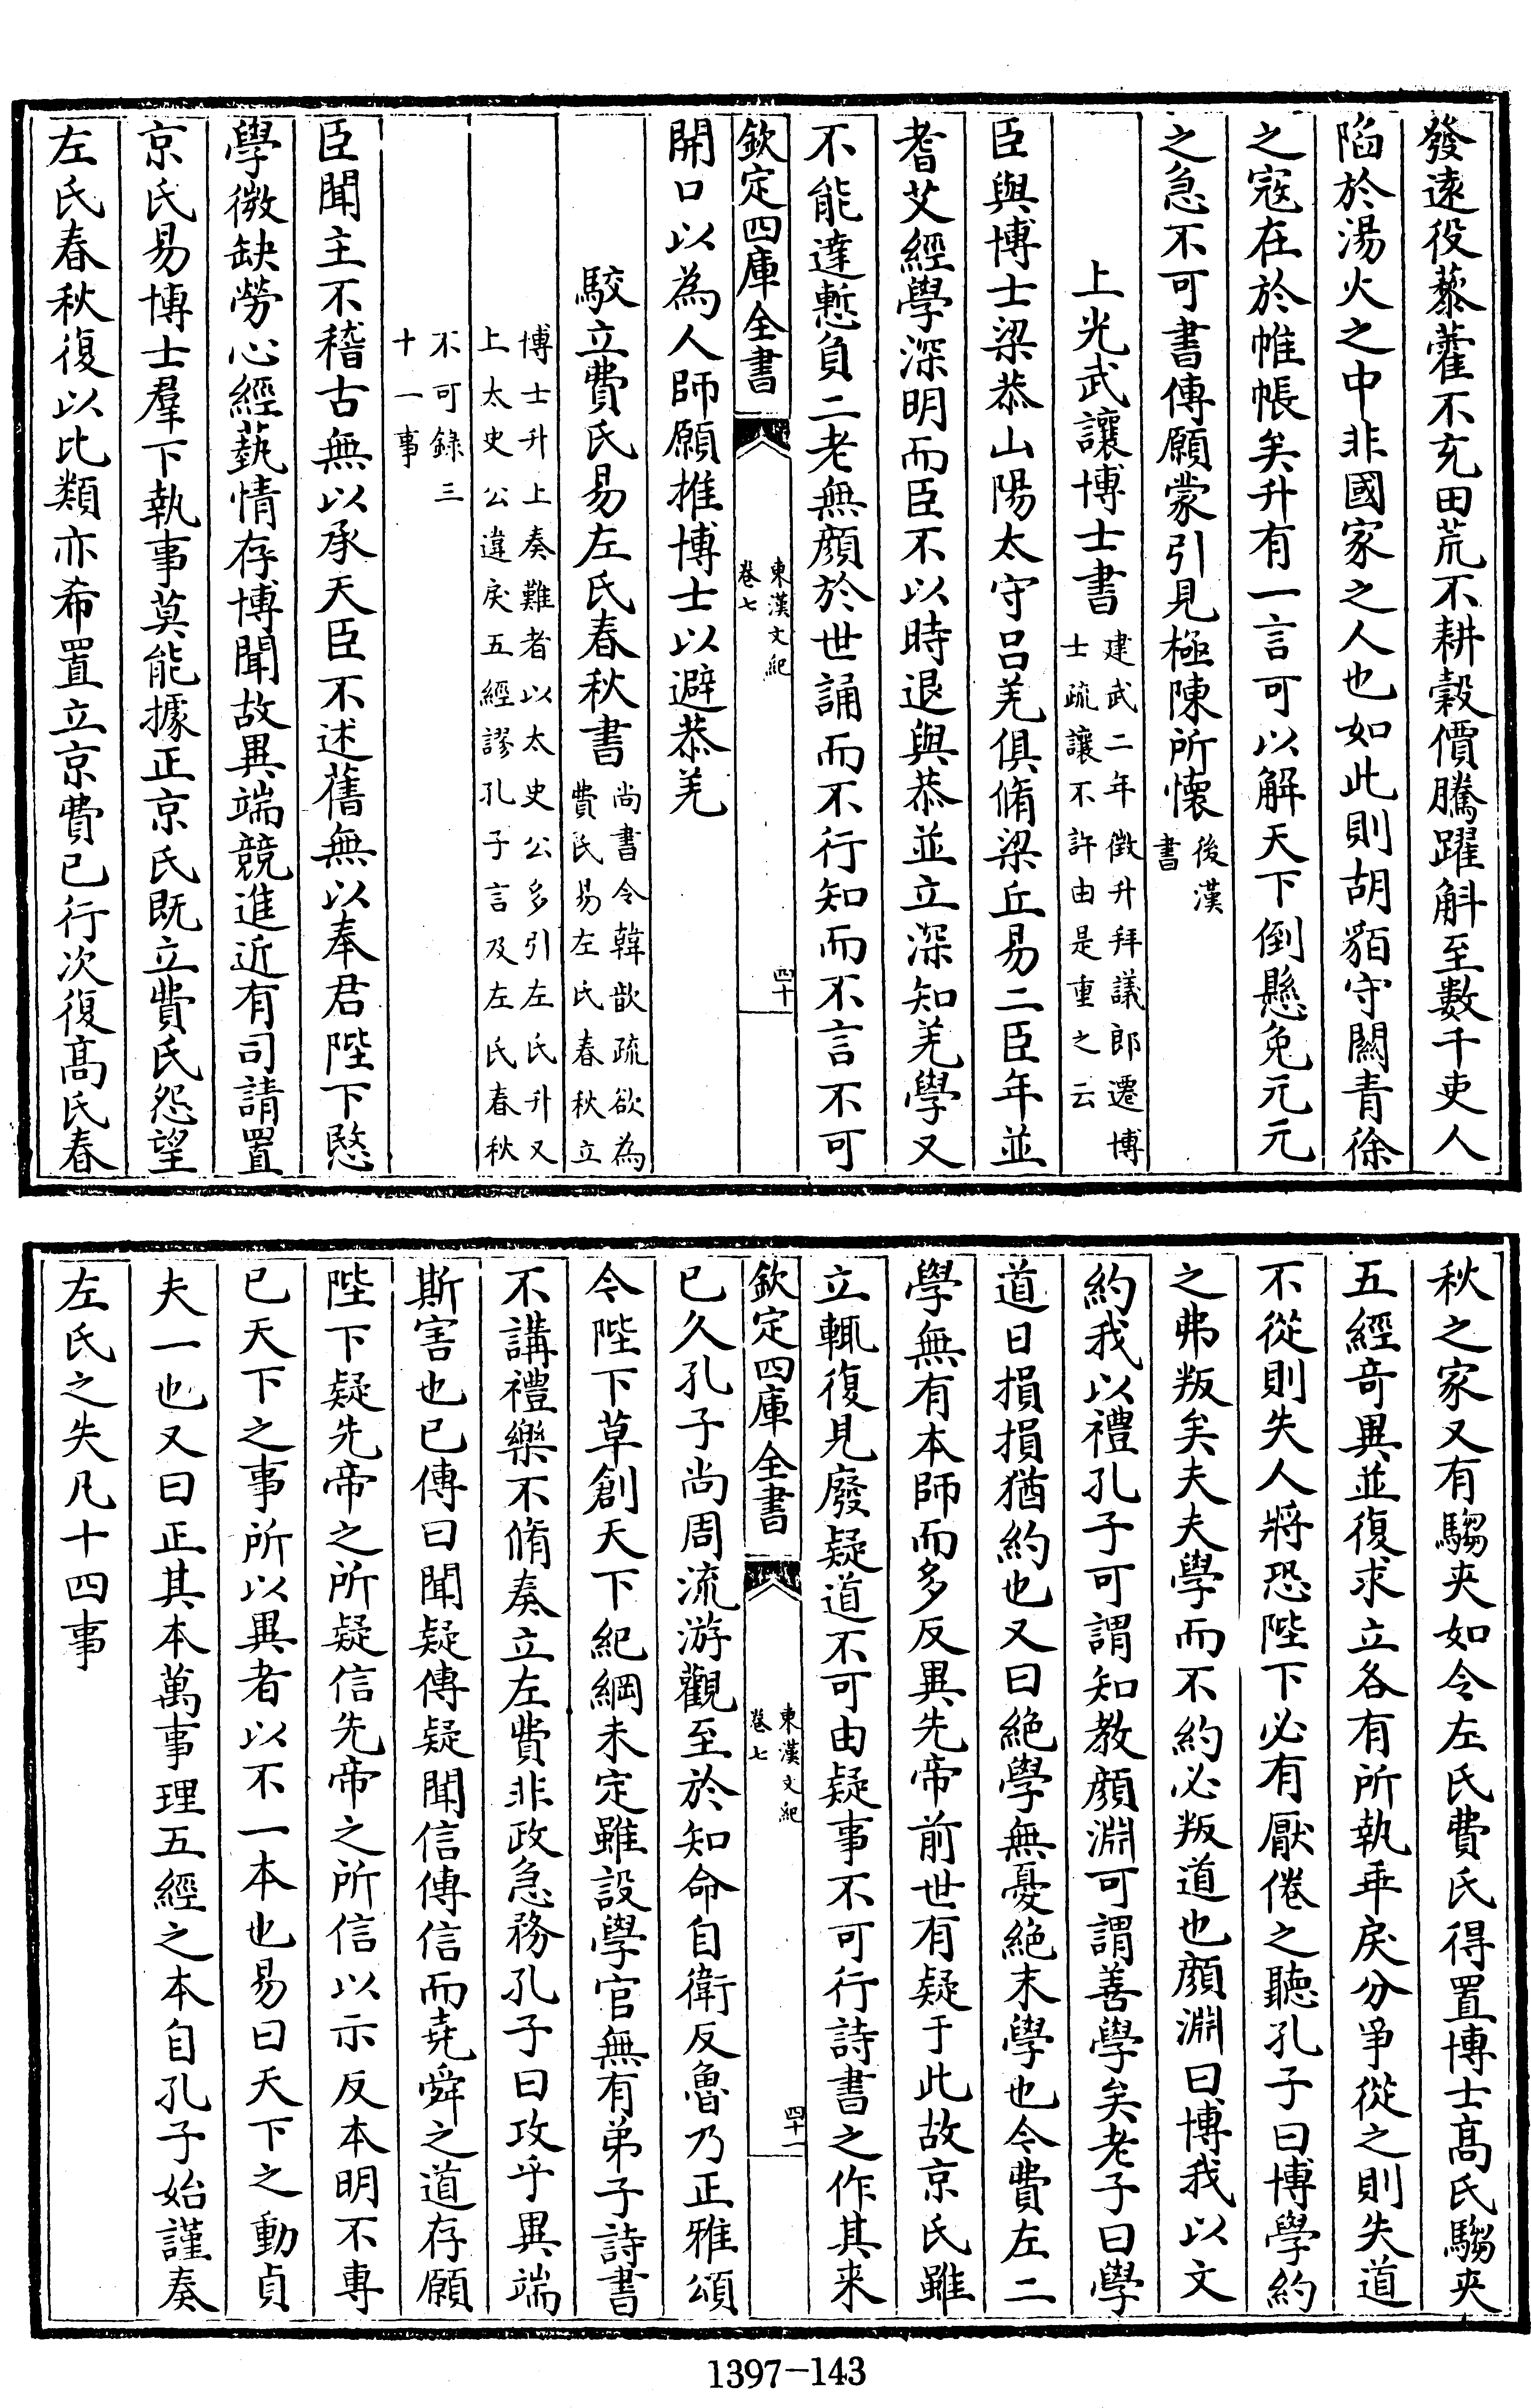 發遠役藜藿不充田荒不耕穀價騰躍斛至數千吏人
陷於湯火之中非國家之人也如此則胡貊守闕青徐
之寇在於帷帳矣升有一言可以解天下倒懸免元元
之急不可書傳願蒙引見極陳所懷後漢
書
上光武讓博士書建武二年徵升拜議郎遷博
士疏讓不許由是重之云
臣與博士梁恭山陽太守呂羌俱脩梁丘易二臣年並
耆艾經學深明而臣不以時退與恭並立深知羌學又
不能達慙負二老無顔於世誦而不行知而不言不可
欽定四庫全書
東漢文紀
卷七
四十
開口以為人師願推博士以避恭羌
駮立費氏易左氏春秋書尚書令韓歆疏欲為
費氏易左氏春秋立
博士升上奏難者以太史公多引左氏升又
上太史公違戾五經謬孔子言及左氏春秋
不可錄三
十一事
臣聞主不稽古無以承天臣不述舊無以奉君陛下愍
學微缺勞心經藝情存博聞故異端競進近有司請置
京氏易博士羣下執事莫能據正京氏既立費氏怨望
左氏春秋復以比類亦希置立京費已行次復髙氏春
秋之家又有騶夾如令左氏費氏得置博士髙氏騶夾
五經竒異並復求立各有所執乖戾分爭從之則失道
不從則失人將恐陛下必有厭倦之聽孔子曰博學約
之弗叛矣夫夫學而不約必叛道也顔淵曰博我以文
約我以禮孔子可謂知教顔淵可謂善學矣老子曰學
道日損損猶約也又曰絶學無憂絶末學也今費左二
學無有本師而多反異先帝前世有疑于此故京氏雖
立輒復見廢疑道不可由疑事不可行詩書之作其来
欽定四庫全書
東漢文紀
卷七
四十一
已久孔子尚周流游觀至於知命自衛反魯乃正雅頌
今陛下草創天下紀綱未定雖設學官無有弟子詩書
不講禮樂不脩奏立左費非政急務孔子曰攻乎異端
斯害也已傳曰聞疑傳疑聞信傳信而堯舜之道存願
陛下疑先帝之所疑信先帝之所信以示反本明不專
已天下之事所以異者以不一本也易曰天下之動貞
夫一也又曰正其本萬事理五經之本自孔子始謹奏
左氏之失凡十四事
1397-143